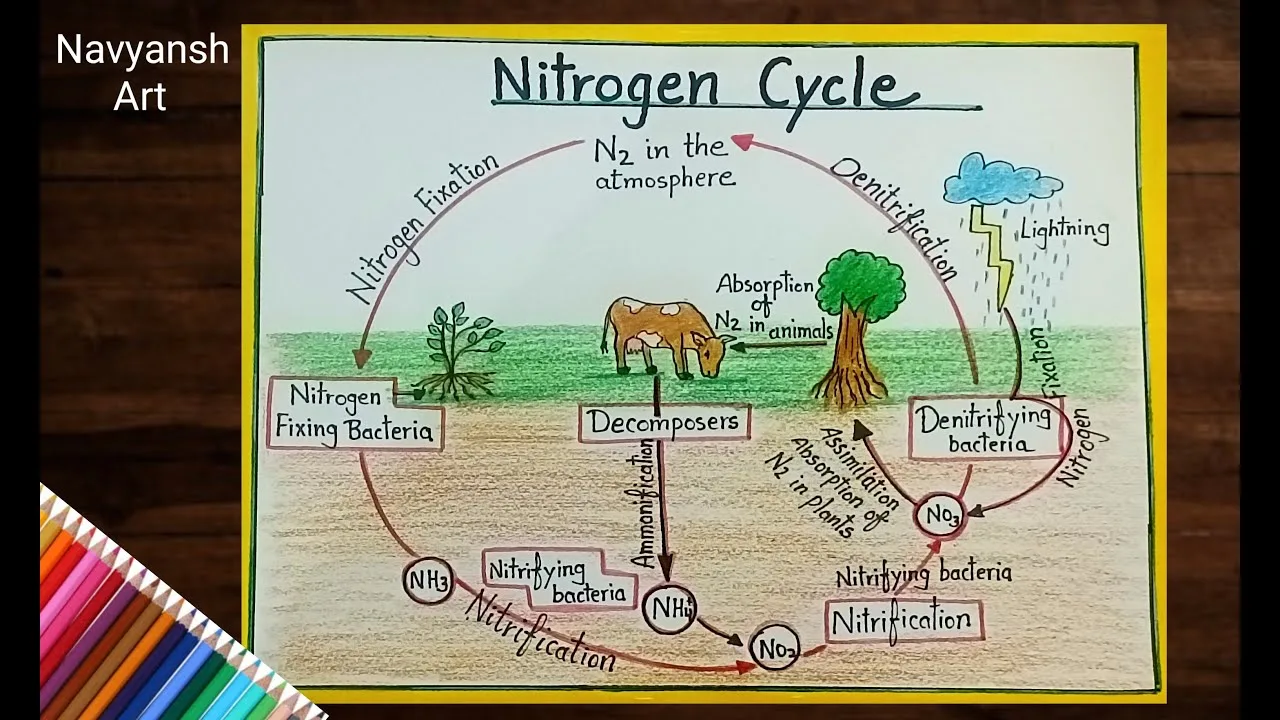 Navyansh
Art
Nitrogen Cycle
N2 in the
atmosphere
Nitrogen Fixation
Denitrification
Lightning
Absorption
of
N2 in animals
Nitrogen Fixation
Nitrogen
Fixing Bacteria
Decomposers
Denitrifying
bacteria
Ammonification
Assimilation
Absorption of
N2 in plants
NO3
NH3
Nitrifying
bacteria
NH4+
Nitrifying bacteria
Nitrification
Nitrification
NO2